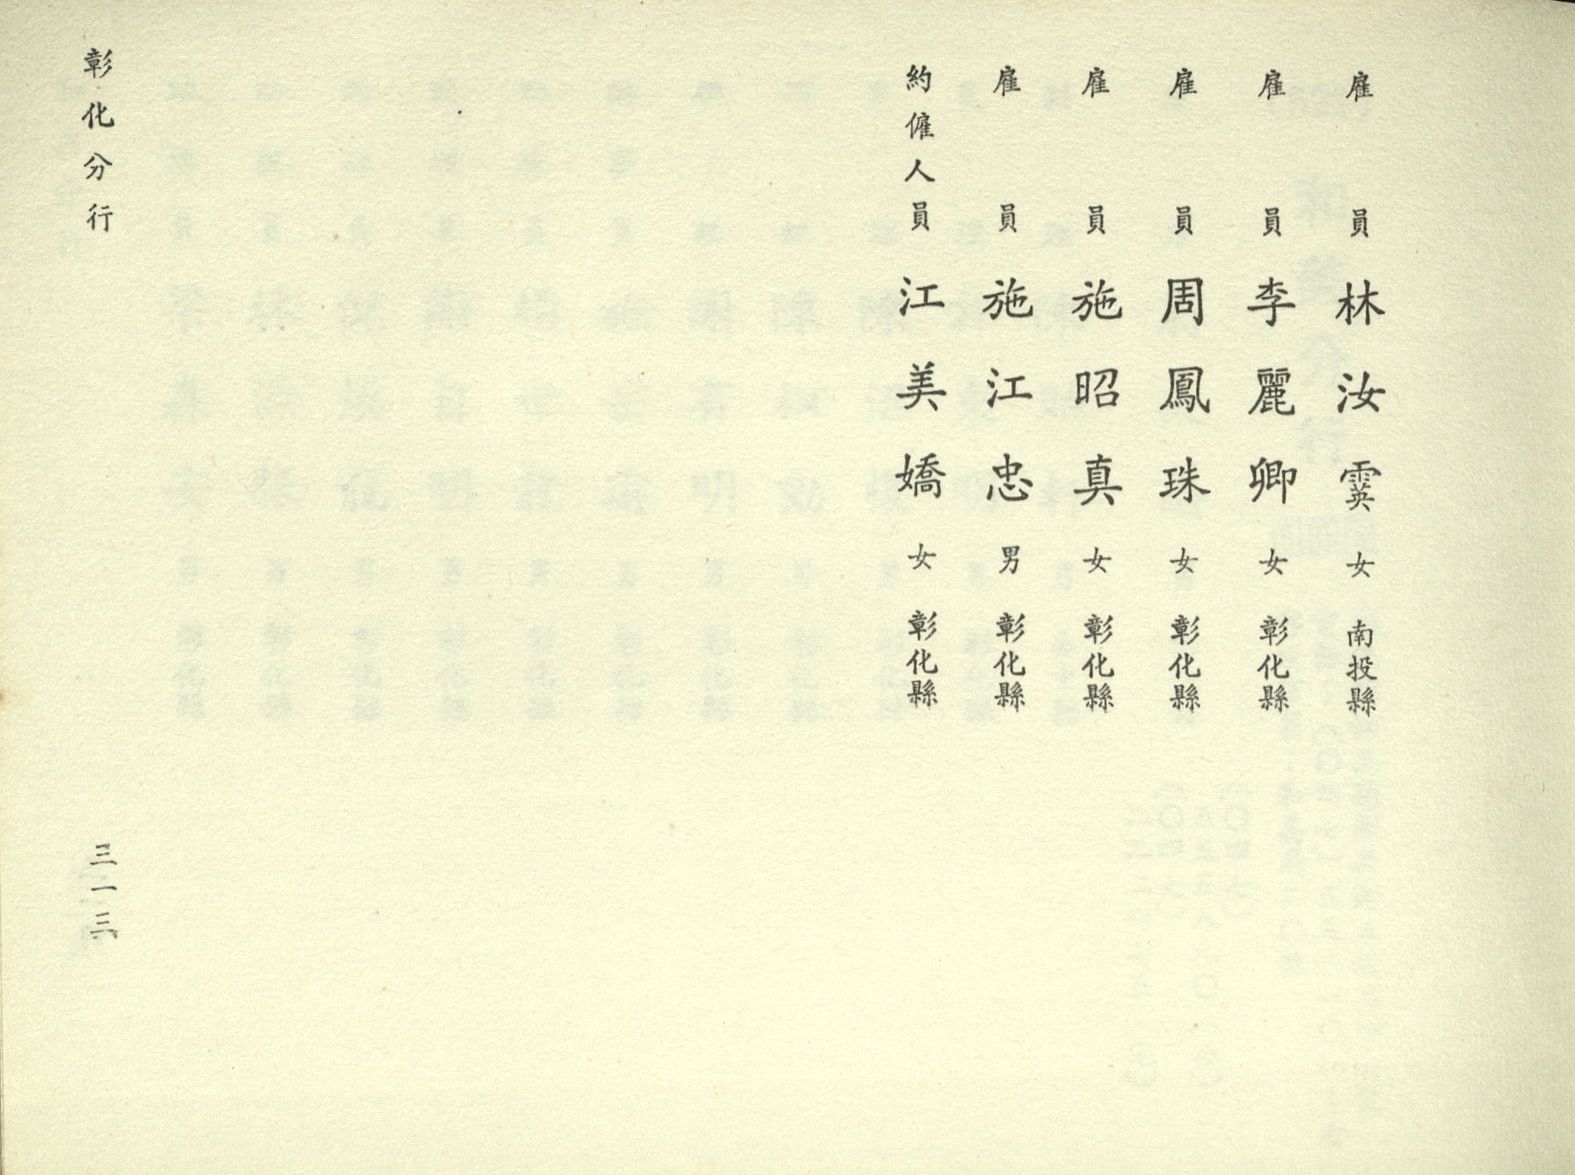 雇員林汝霙女南投縣
雇員李麗卿女彰化縣
雇員周鳳珠女彰化縣
雇員施昭真女彰化縣
雇員施江忠男彰化縣
約僱人員江美嬌女彰化縣
彰化分行
三一三